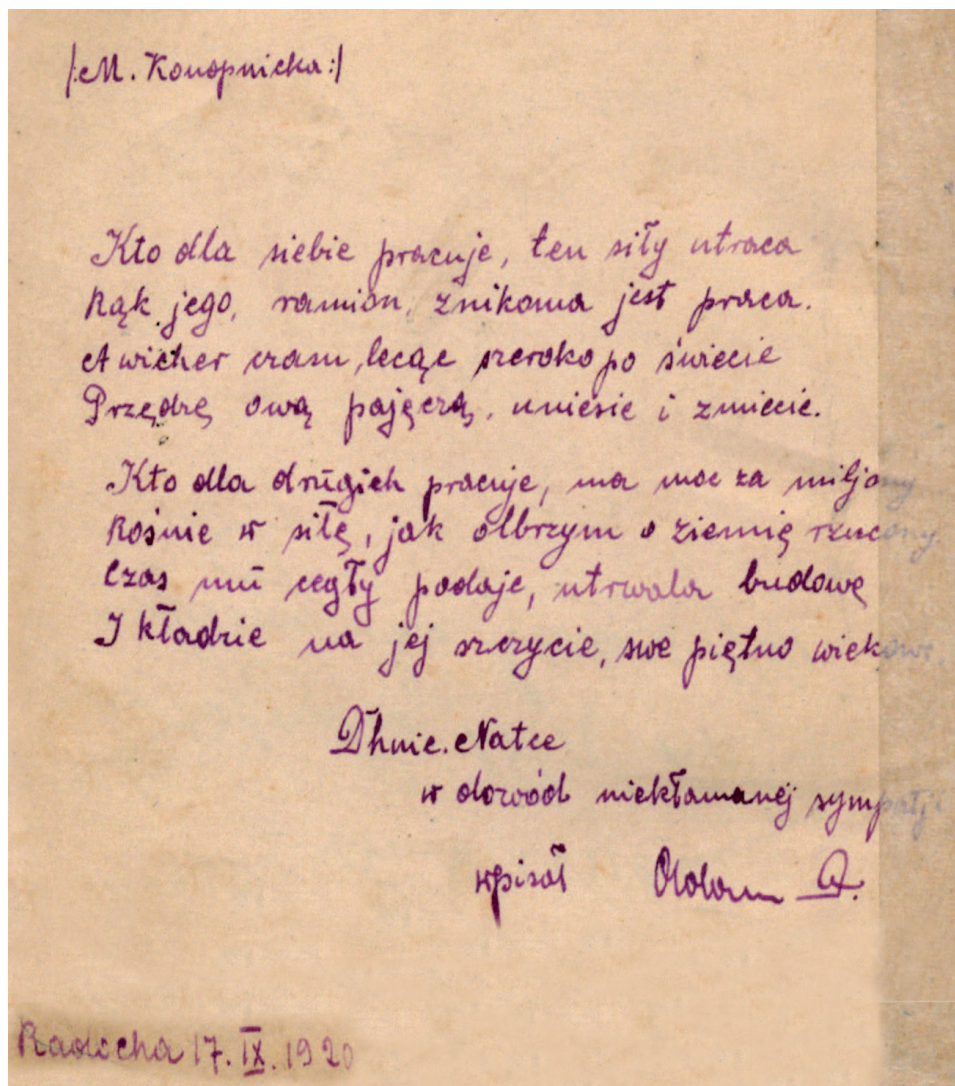 /:M. Konopnicka:/
Kto dla siebie pracuje, ten siły utraca
Rąk jego, ramion, znikoma jest praca.
A wicher czasu, lecąc szeroko po świecie
Przędzę ową pajęczą, uniesie i zmiecie.
Kto dla drugich pracuje, ma moc za miljony
Rośnie w siłę, jak olbrzym o ziemię rzucony.
Czas mu cegły podaje, utrwala budowę
I kładzie na jej szczycie, swe piętno wiekowe.
Dhnie. Natce
w dowód niekłamanej sympatji
wpisał Adam
Radocha 17. IX. 1920